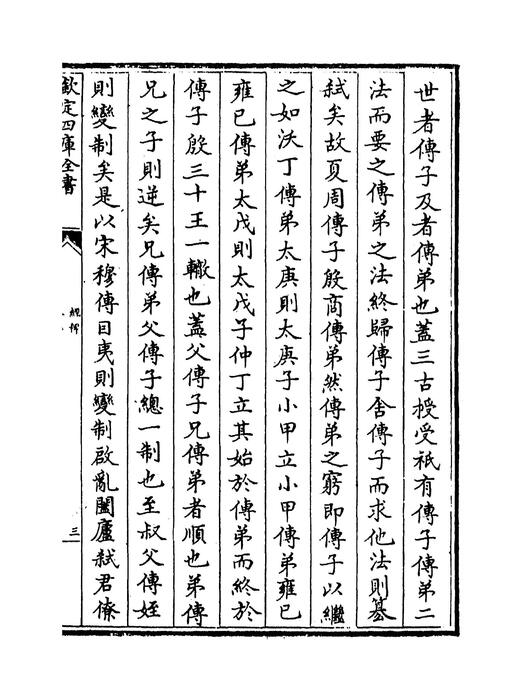 世者傳子及者傳弟也蓋三古授受祇有傳子傳弟二
法而要之傳弟之法終歸傳子舍傳子而求他法則簒
弑矣故夏周傳子殷商傳弟然傳弟之窮即傳子以繼
之如沃丁傳弟太庚則太庚子小甲立小甲傳弟雍已
雍已傳弟太戊則太戊子仲丁立其始於傳弟而終於
傳子殷三十王一轍也蓋父傳子兄傳弟者順也弟傳
兄之子則逆矣兄傳弟父傳子總一制也至叔父傳姪
則變制矣是以宋穆傳目夷則變制啟亂闔廬弑君僚
欽定四庫全書
三